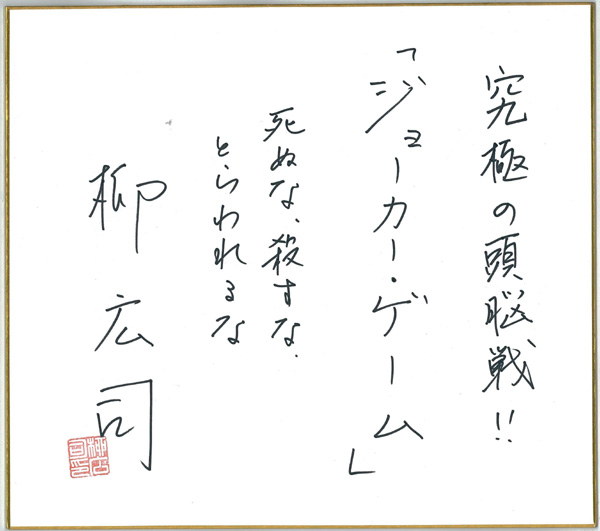 究極の頭脳戦!!
「ジョーカー・ゲーム」
死ぬな、殺すな、
とらわれるな
柳広司